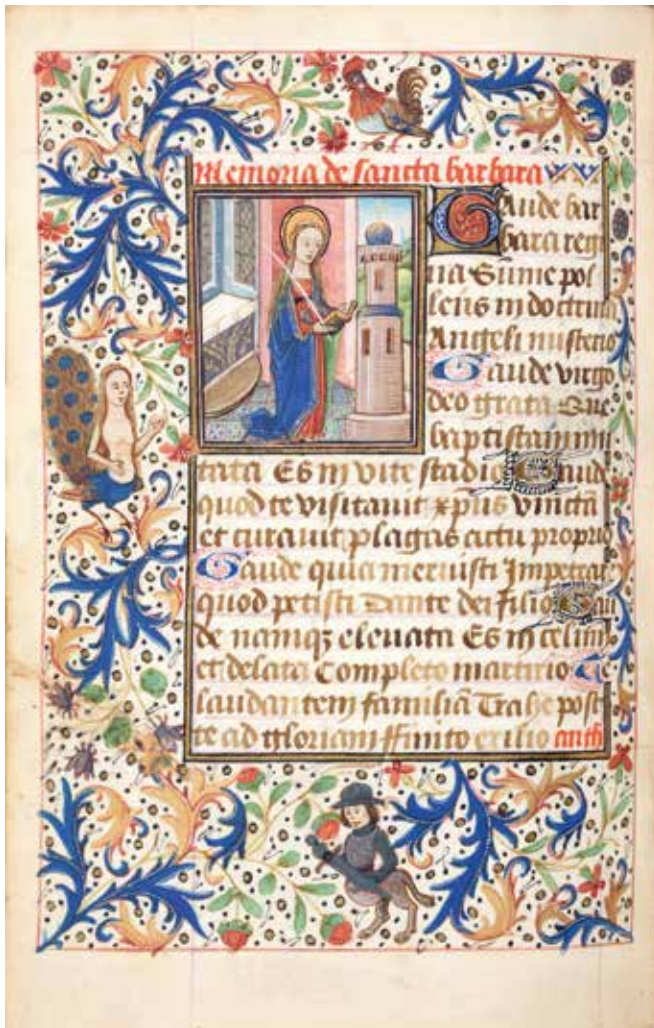 Memoria de sancta barbara
Gaude bar
bara regi
na Sūme pol
lens in doctrina
Angeli misterio
Gaude virgo
deo grata Que
baptistam imi
tata Es in vite stadio Gaud
quod te visitauit xp̄us vincta
et curauit plagas actu proprio
Gaude quia meruisti Impetrar
quod petisti Dante dei filio Gau
de namqꝫ eleuata Es in celum
et delata Completo martirio Te
laudantem familiā Trahe post
te ad gloriam ffinito exilio anth